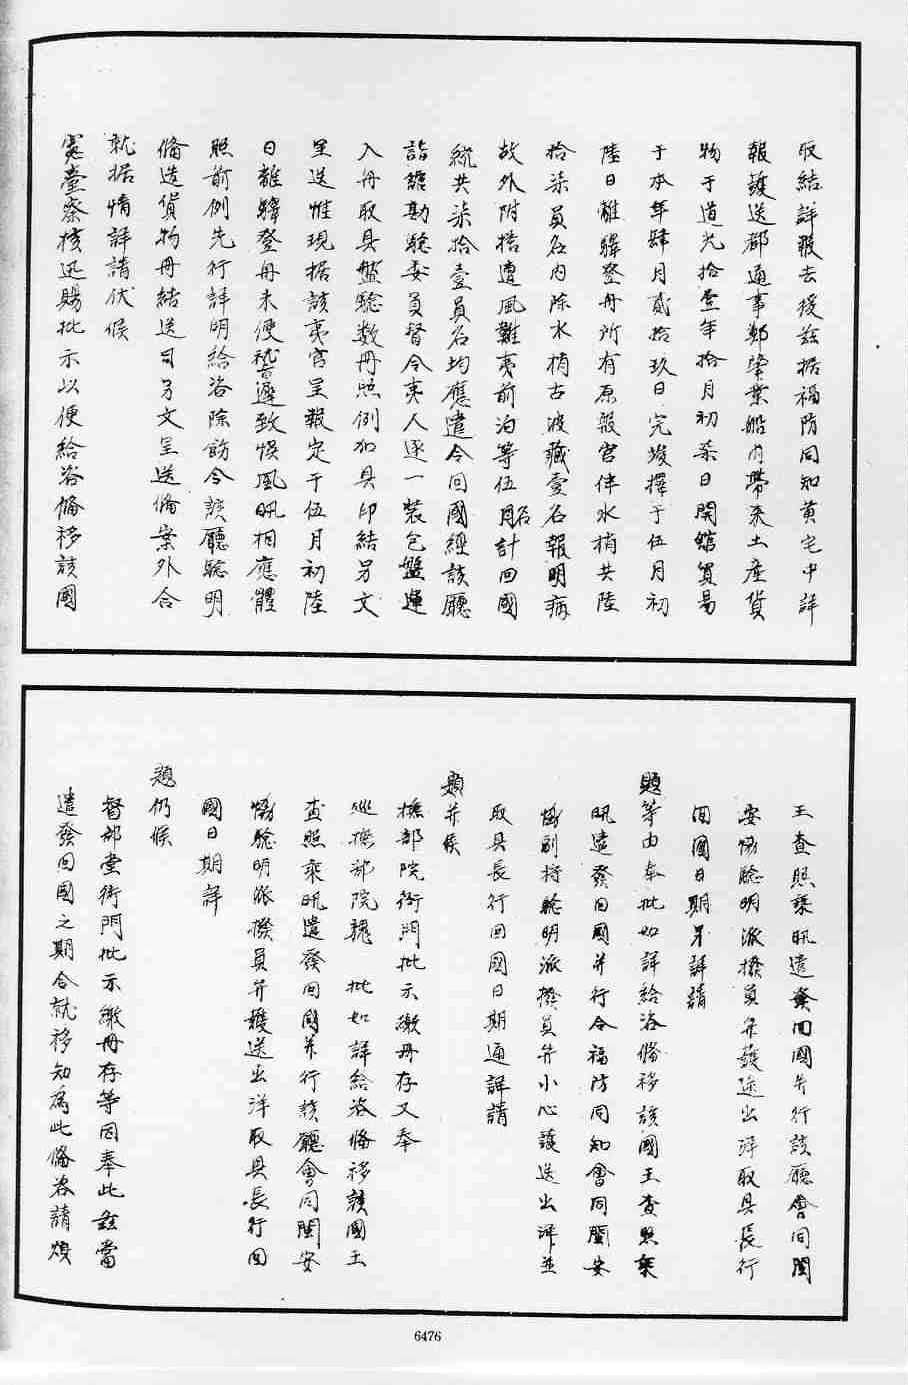 取結詳報去後茲据福防同知黄宅中詳
報護送都通事鄭肇業船内帶來土産貨
物于道光拾壹年拾月初柒日開館貿易
于本年肆月貳拾玖日完竣擇于伍月初
陸日離驛登舟所有原報官伴水梢共陸
拾柒員名内除水梢古波藏壹名報明病
故外附搭遭風難夷前泊等伍名計回國
統共柒拾壹員名均應遣令回國經該廳
詣驗勘騐委員督令夷人逐一裝包盤運
入舟取具盤騐数冊照例加具印結另文
呈送惟現据該夷官呈報定于伍月初陸
日離驛登舟未便稽遲致悞風帆相應體
照前例先行詳明給咨除飭令該廳騐明
俻造貨物冊結送司另文呈送俻案外合
就据情詳請伏候
憲臺察核迅賜批示以便給咨俻移該國
王查照乘帆遣發回國并行該廳會同閩
安協騐明派撥員弁護送出洋取具長行
回國日期另詳請
題等由奉批如詳給咨俻移該國王查照乘
帆遣發回國并行令福防同知會同閩安
協副將騐明派撥員弁小心護送出洋並
取具長行回國日期通詳請
題并候
撫部院衙門批示繳冊存又奉
巡撫部院魏　批如詳給咨俻移該國王
查照乘帆遣發回國并行該廳會同閩安
協騐明派撥員弁護送出洋取具長行回
國日期詳
題仍候
督部堂衙門批示繳冊存等因奉此茲當
遣發回國之期合就移知為此俻咨請煩
6476